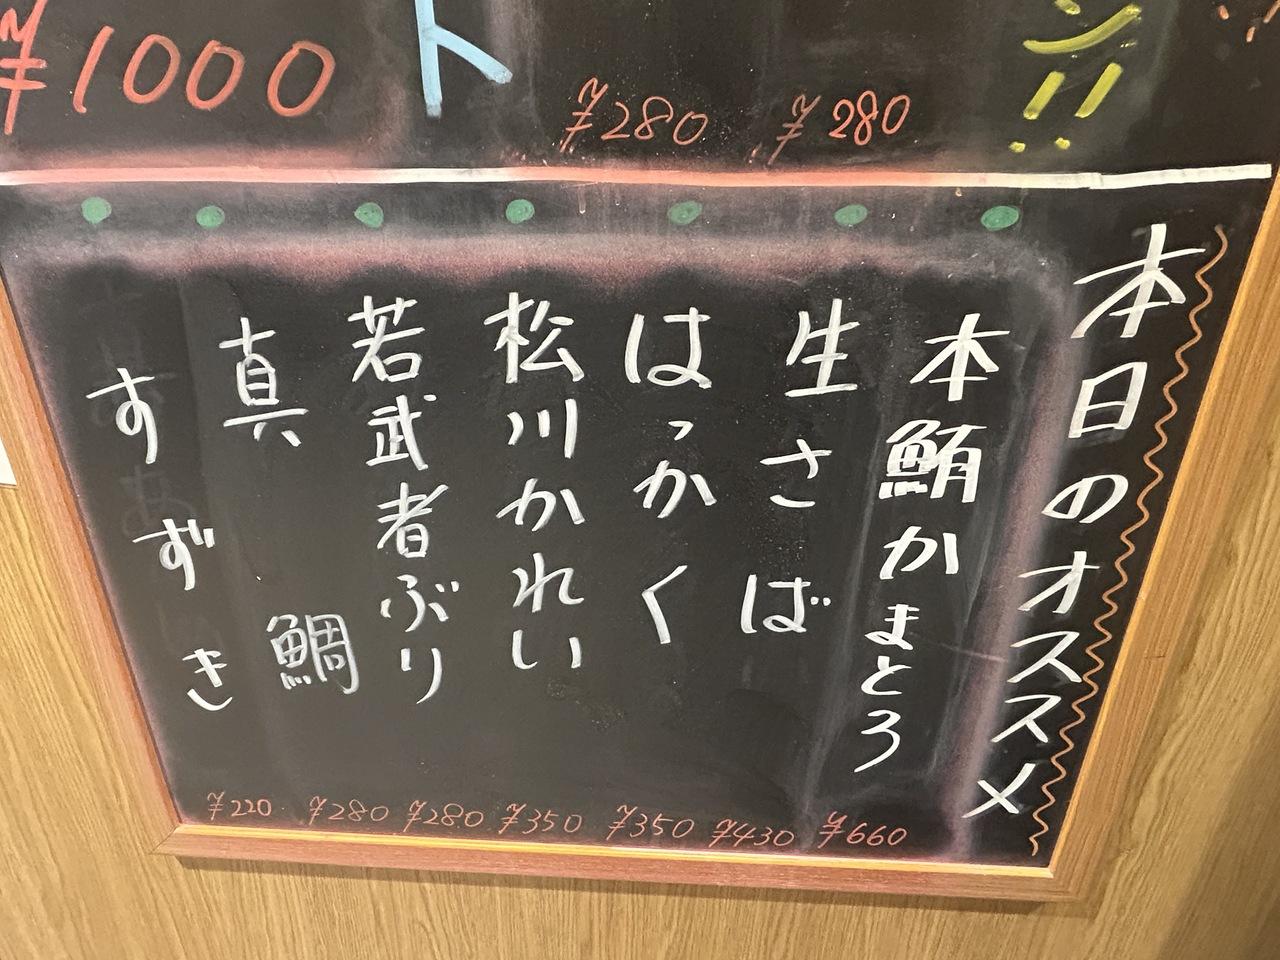 ¥1000
ト
¥280
¥280
ン!!
本日のオススメ
本鮪かまとろ
¥660
生さば
¥430
はっかく
¥350
松川かれい
¥350
若武者ぶり
¥280
真鯛
¥280
すずき
¥220